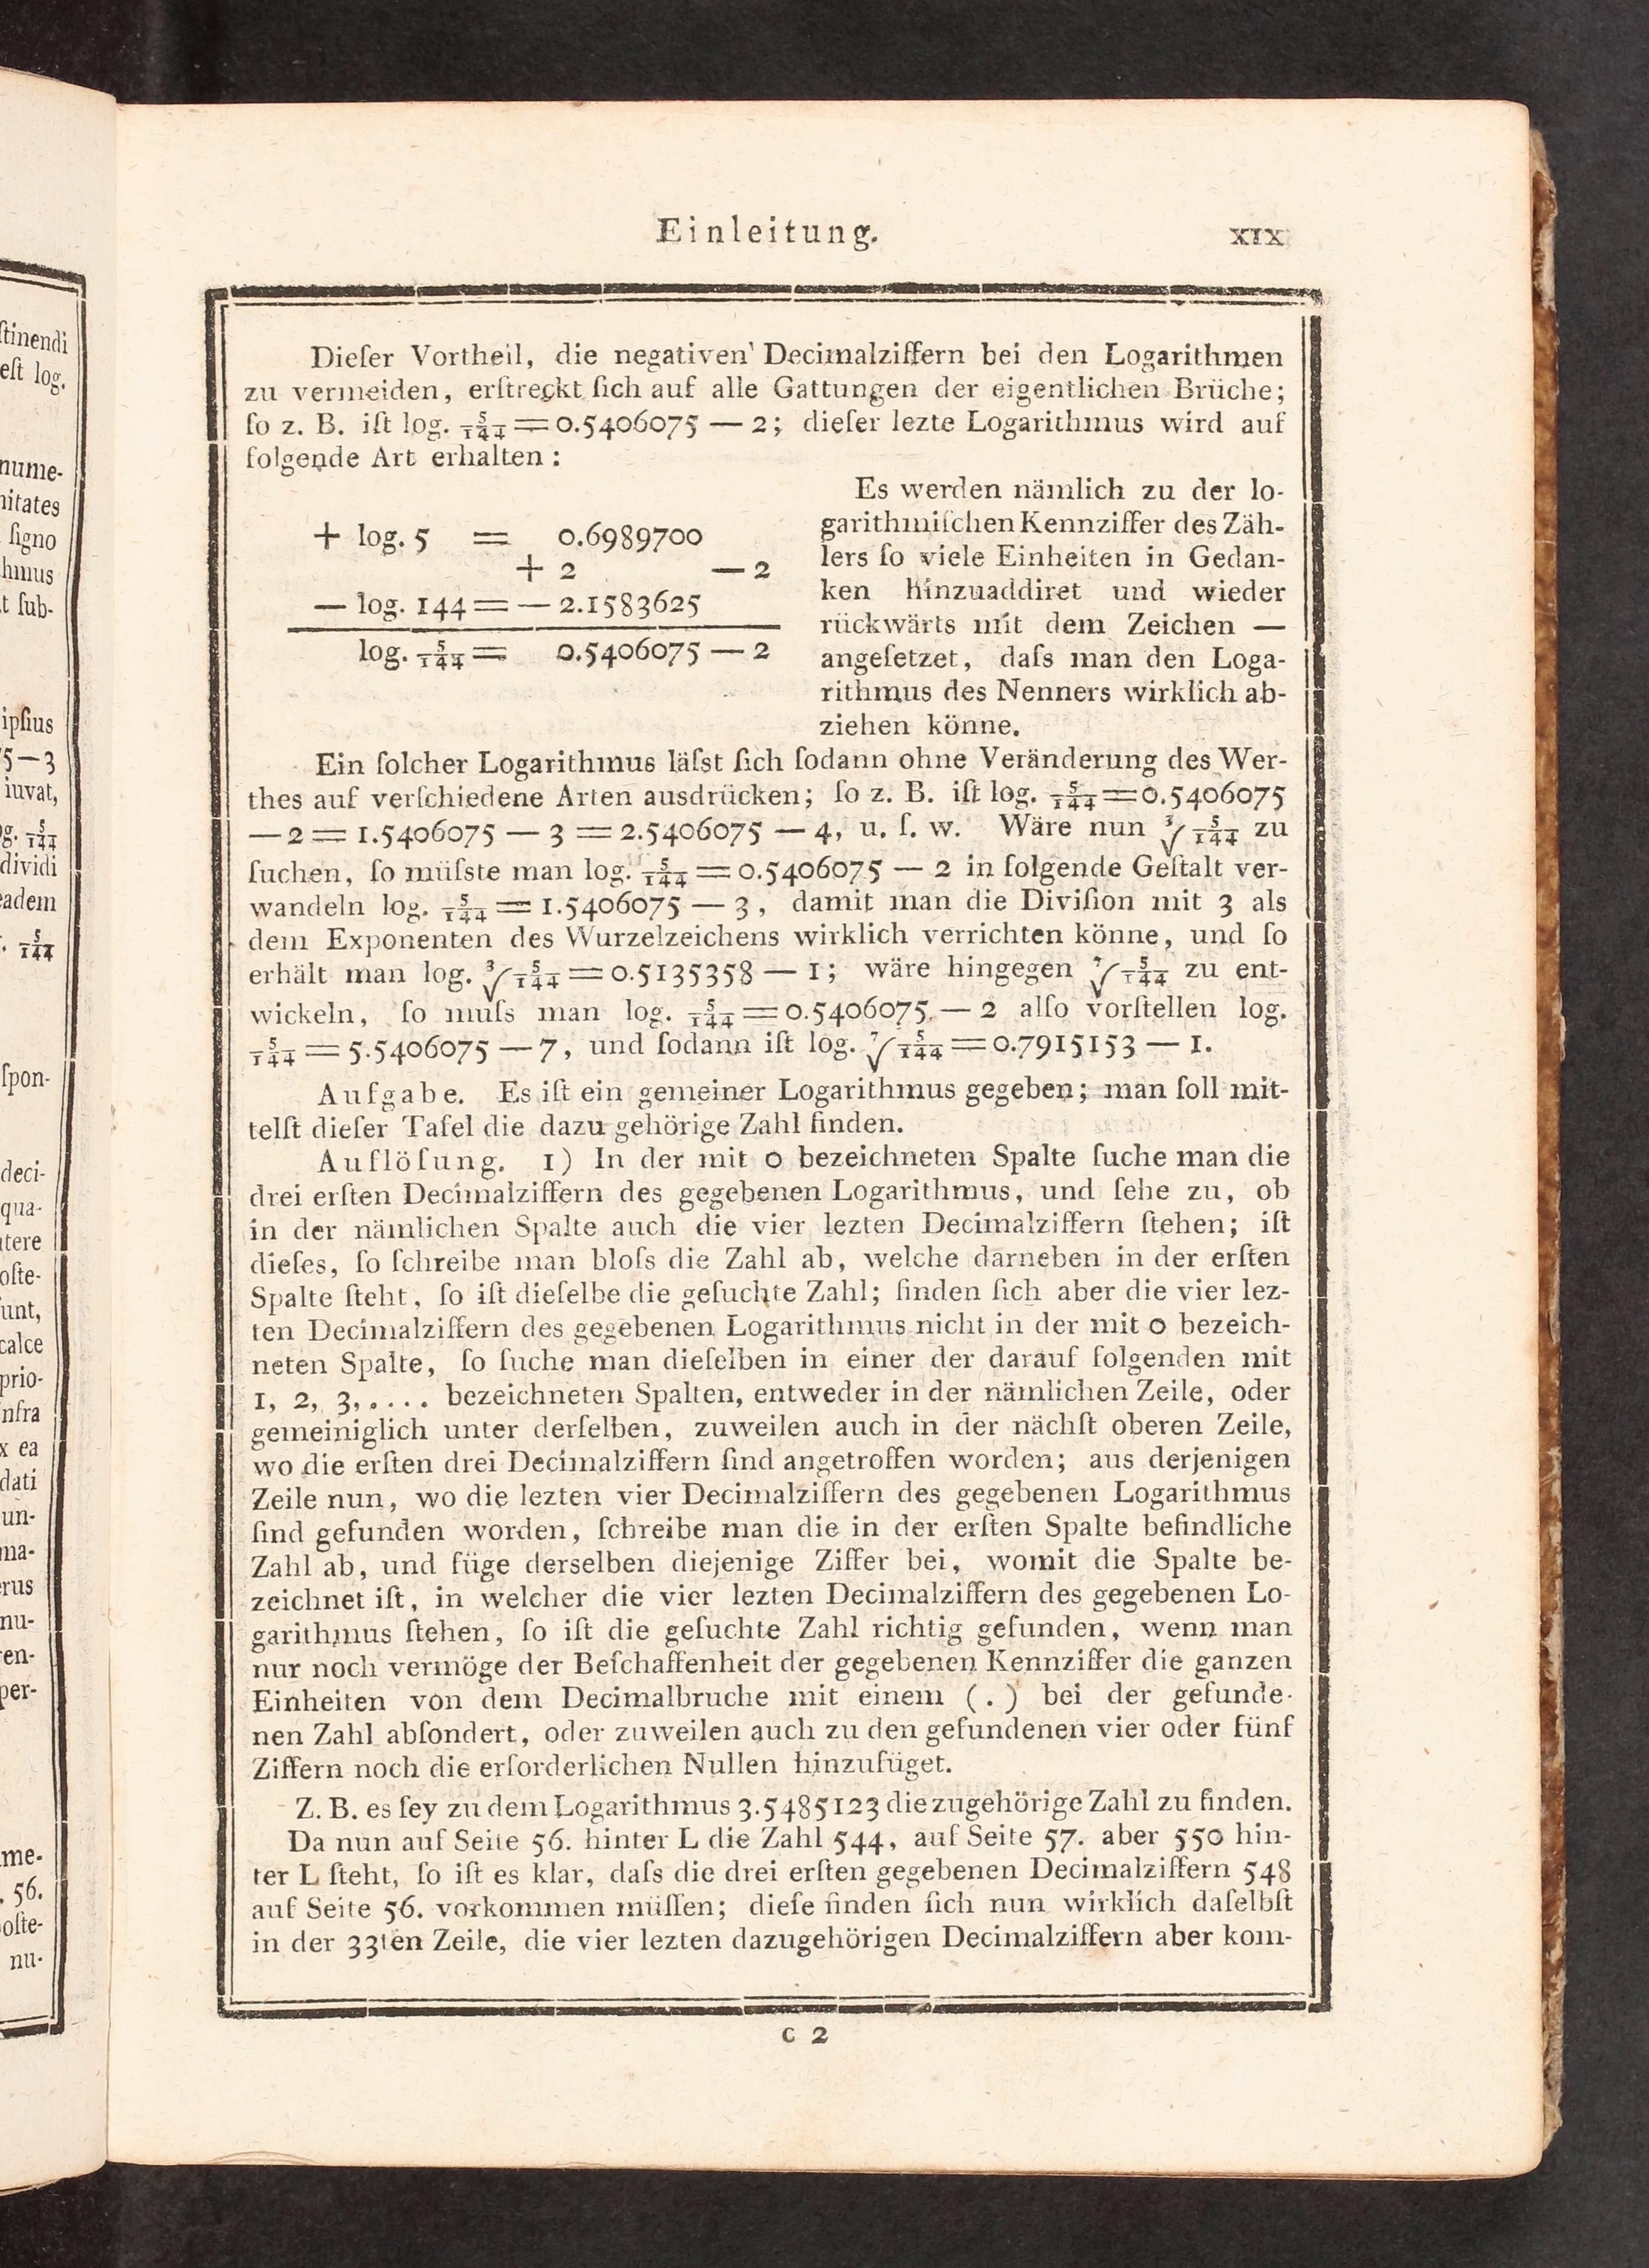 ſtinendi
eſt log.
nume-
nitates
ſigno
hmus
t ſub-
ipſius
5—3
iuvat,
g. 5/144
dividi
eadem
. 5/144
ſpon-
deci-
qua-
tere
oſte-
unt,
calce
prio-
nfra
x ea
dati
un-
ma-
rus
nu-
en-
per-
me-
. 56.
oſte-
nu-
Einleitung. XIX
Dieſer Vortheil, die negativen Decimalziffern bei den Logarithmen
zu vermeiden, erſtreckt ſich auf alle Gattungen der eigentlichen Brüche;
ſo z. B. iſt log. 5/144 = 0.5406075 — 2; dieſer lezte Logarithmus wird auf
folgende Art erhalten:
+ log. 5 = 0.6989700
+ 2 — 2
— log. 144 = — 2.1583625
log. 5/144 = 0.5406075 — 2
Es werden nämlich zu der lo-
garithmiſchen Kennziffer des Zäh-
lers ſo viele Einheiten in Gedan-
ken hinzuaddiret und wieder
rückwärts mit dem Zeichen —
angeſetzet, daſs man den Loga-
rithmus des Nenners wirklich ab-
ziehen könne.
Ein ſolcher Logarithmus läſst ſich ſodann ohne Veränderung des Wer-
thes auf verſchiedene Arten ausdrücken; ſo z. B. iſt log. 5/144 = 0.5406075
— 2 = 1.5406075 — 3 = 2.5406075 — 4, u. ſ. w. Wäre nun ³√ 5/144 zu
ſuchen, ſo müſste man log. 5/144 = 0.5406075 — 2 in folgende Geſtalt ver-
wandeln log. 5/144 = 1.5406075 — 3, damit man die Diviſion mit 3 als
dem Exponenten des Wurzelzeichens wirklich verrichten könne, und ſo
erhält man log. ³√ 5/144 = 0.5135358 — 1; wäre hingegen ⁷√ 5/144 zu ent-
wickeln, ſo muſs man log. 5/144 = 0.5406075 — 2 alſo vorſtellen log.
5/144 = 5.5406075 — 7, und ſodann iſt log. ⁷√ 5/144 = 0.7915153 — 1.
Aufgabe. Es iſt ein gemeiner Logarithmus gegeben; man ſoll mit-
telſt dieſer Tafel die dazu gehörige Zahl finden.
Auflöſung. 1) In der mit 0 bezeichneten Spalte ſuche man die
drei erſten Decimalziffern des gegebenen Logarithmus, und ſehe zu, ob
in der nämlichen Spalte auch die vier lezten Decimalziffern ſtehen; iſt
dieſes, ſo ſchreibe man bloſs die Zahl ab, welche darneben in der erſten
Spalte ſteht, ſo iſt dieſelbe die geſuchte Zahl; finden ſich aber die vier lez-
ten Decimalziffern des gegebenen Logarithmus nicht in der mit 0 bezeich-
neten Spalte, ſo ſuche man dieſelben in einer der darauf folgenden mit
1, 2, 3, .... bezeichneten Spalten, entweder in der nämlichen Zeile, oder
gemeiniglich unter derſelben, zuweilen auch in der nächſt oberen Zeile,
wo die erſten drei Decimalziffern ſind angetroffen worden; aus derjenigen
Zeile nun, wo die lezten vier Decimalziffern des gegebenen Logarithmus
ſind gefunden worden, ſchreibe man die in der erſten Spalte befindliche
Zahl ab, und füge derselben diejenige Ziffer bei, womit die Spalte be-
zeichnet iſt, in welcher die vier lezten Decimalziffern des gegebenen Lo-
garithmus ſtehen, ſo iſt die geſuchte Zahl richtig gefunden, wenn man
nur noch vermöge der Beſchaffenheit der gegebenen Kennziffer die ganzen
Einheiten von dem Decimalbruche mit einem (.) bei der gefunde-
nen Zahl abſondert, oder zuweilen auch zu den gefundenen vier oder fünf
Ziffern noch die erforderlichen Nullen hinzufüget.
Z. B. es ſey zu dem Logarithmus 3.5485123 die zugehörige Zahl zu finden.
Da nun auf Seite 56. hinter L die Zahl 544, auf Seite 57. aber 550 hin-
ter L ſteht, ſo iſt es klar, daſs die drei erſten gegebenen Decimalziffern 548
auf Seite 56. vorkommen müſſen; dieſe finden ſich nun wirklich daſelbſt
in der 33ten Zeile, die vier lezten dazugehörigen Decimalziffern aber kom-
C 2